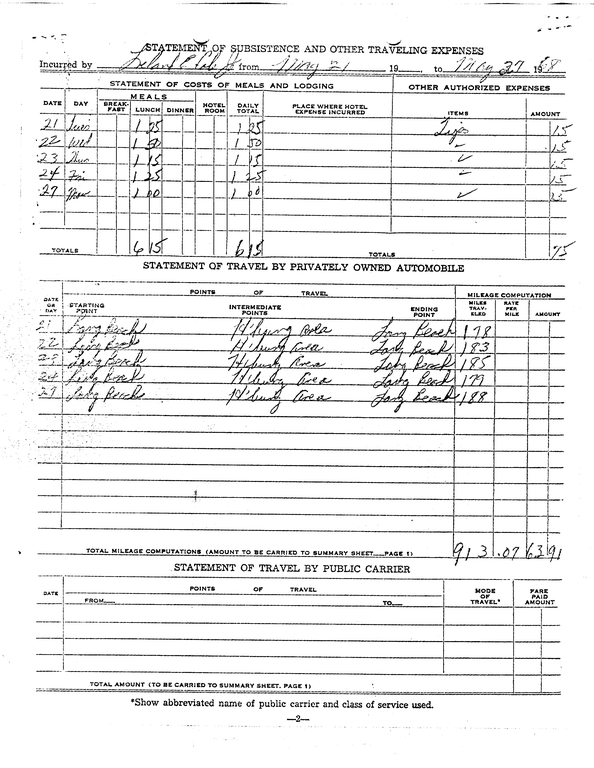 STATEMENT OF SUBSISTENCE AND OTHER TRAVELING EXPENSES
Incurred by from May 21 19 to May 27 1968
STATEMENT OF COSTS OF MEALS AND LODGING OTHER AUTHORIZED EXPENSES
MEALS
DATE DAY BREAK-FAST LUNCH DINNER HOTEL ROOM DAILY TOTAL PLACE WHERE HOTEL EXPENSE INCURRED ITEMS AMOUNT
21 Tues 1 25 1 25 Tips 15
22 Wed 1 50 1 50 15
23 Thur 1 15 1 15 ✓ 15
24 Fri 1 25 1 25 15
27 Mon 1 00 1 00 ✓
TOTALS 6 15 6 15 TOTALS 75
STATEMENT OF TRAVEL BY PRIVATELY OWNED AUTOMOBILE
POINTS OF TRAVEL MILEAGE COMPUTATION
DATE OR DAY STARTING POINT INTERMEDIATE POINTS ENDING POINT MILES TRAV-ELED RATE PER MILE AMOUNT
21 Long Beach Area Long Beach 178
22 Long Beach Area Long Beach 183
23 Long Beach Area Long Beach 185
24 Long Beach Area Long Beach 179
27 Long Beach Area Long Beach 188
TOTAL MILEAGE COMPUTATIONS (AMOUNT TO BE CARRIED TO SUMMARY SHEET PAGE 1) 913 .07 63 91
STATEMENT OF TRAVEL BY PUBLIC CARRIER
DATE POINTS OF TRAVEL MODE OF TRAVEL* FARE PAID AMOUNT
FROM TO
TOTAL AMOUNT (TO BE CARRIED TO SUMMARY SHEET, PAGE 1)
*Show abbreviated name of public carrier and class of service used.
—2—